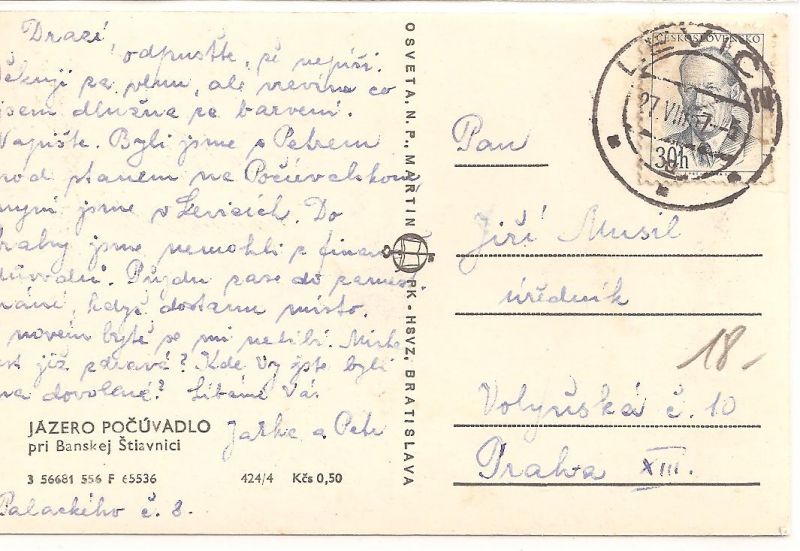 Drazí!
odpusťte, že nepíši.
Děkuji za vlnu, ale nevím co
jsem dlužna za barvení.
Napište. Byli jsme s Petrem
pod stanem na Počúvalskom
nyní jsme v Levicích. Do
Prahy jsme nemohli z finan.
důvodů. Půjdu zase do zaměst
nání, když dostanu místo.
novém bytě se mi nelíbí.
již zdravá? Kde Vy jste byli
na dovolené? Líbáme Vás
a Petr
JAZERO POČÚVADLO
pri Banskej Štiavnici
3 56681 556 F 65536 424/4 Kčs 0,50
Palackého č. 8.
OSVETA, N. P., MARTIN
PK - HSVZ, BRATISLAVA
ČESKOSLOVENSKO
30h
LEVICE
27.VIII.57
Pan
Jiří Musil
úředník
18-
Volyňská č. 10
Praha XIII.